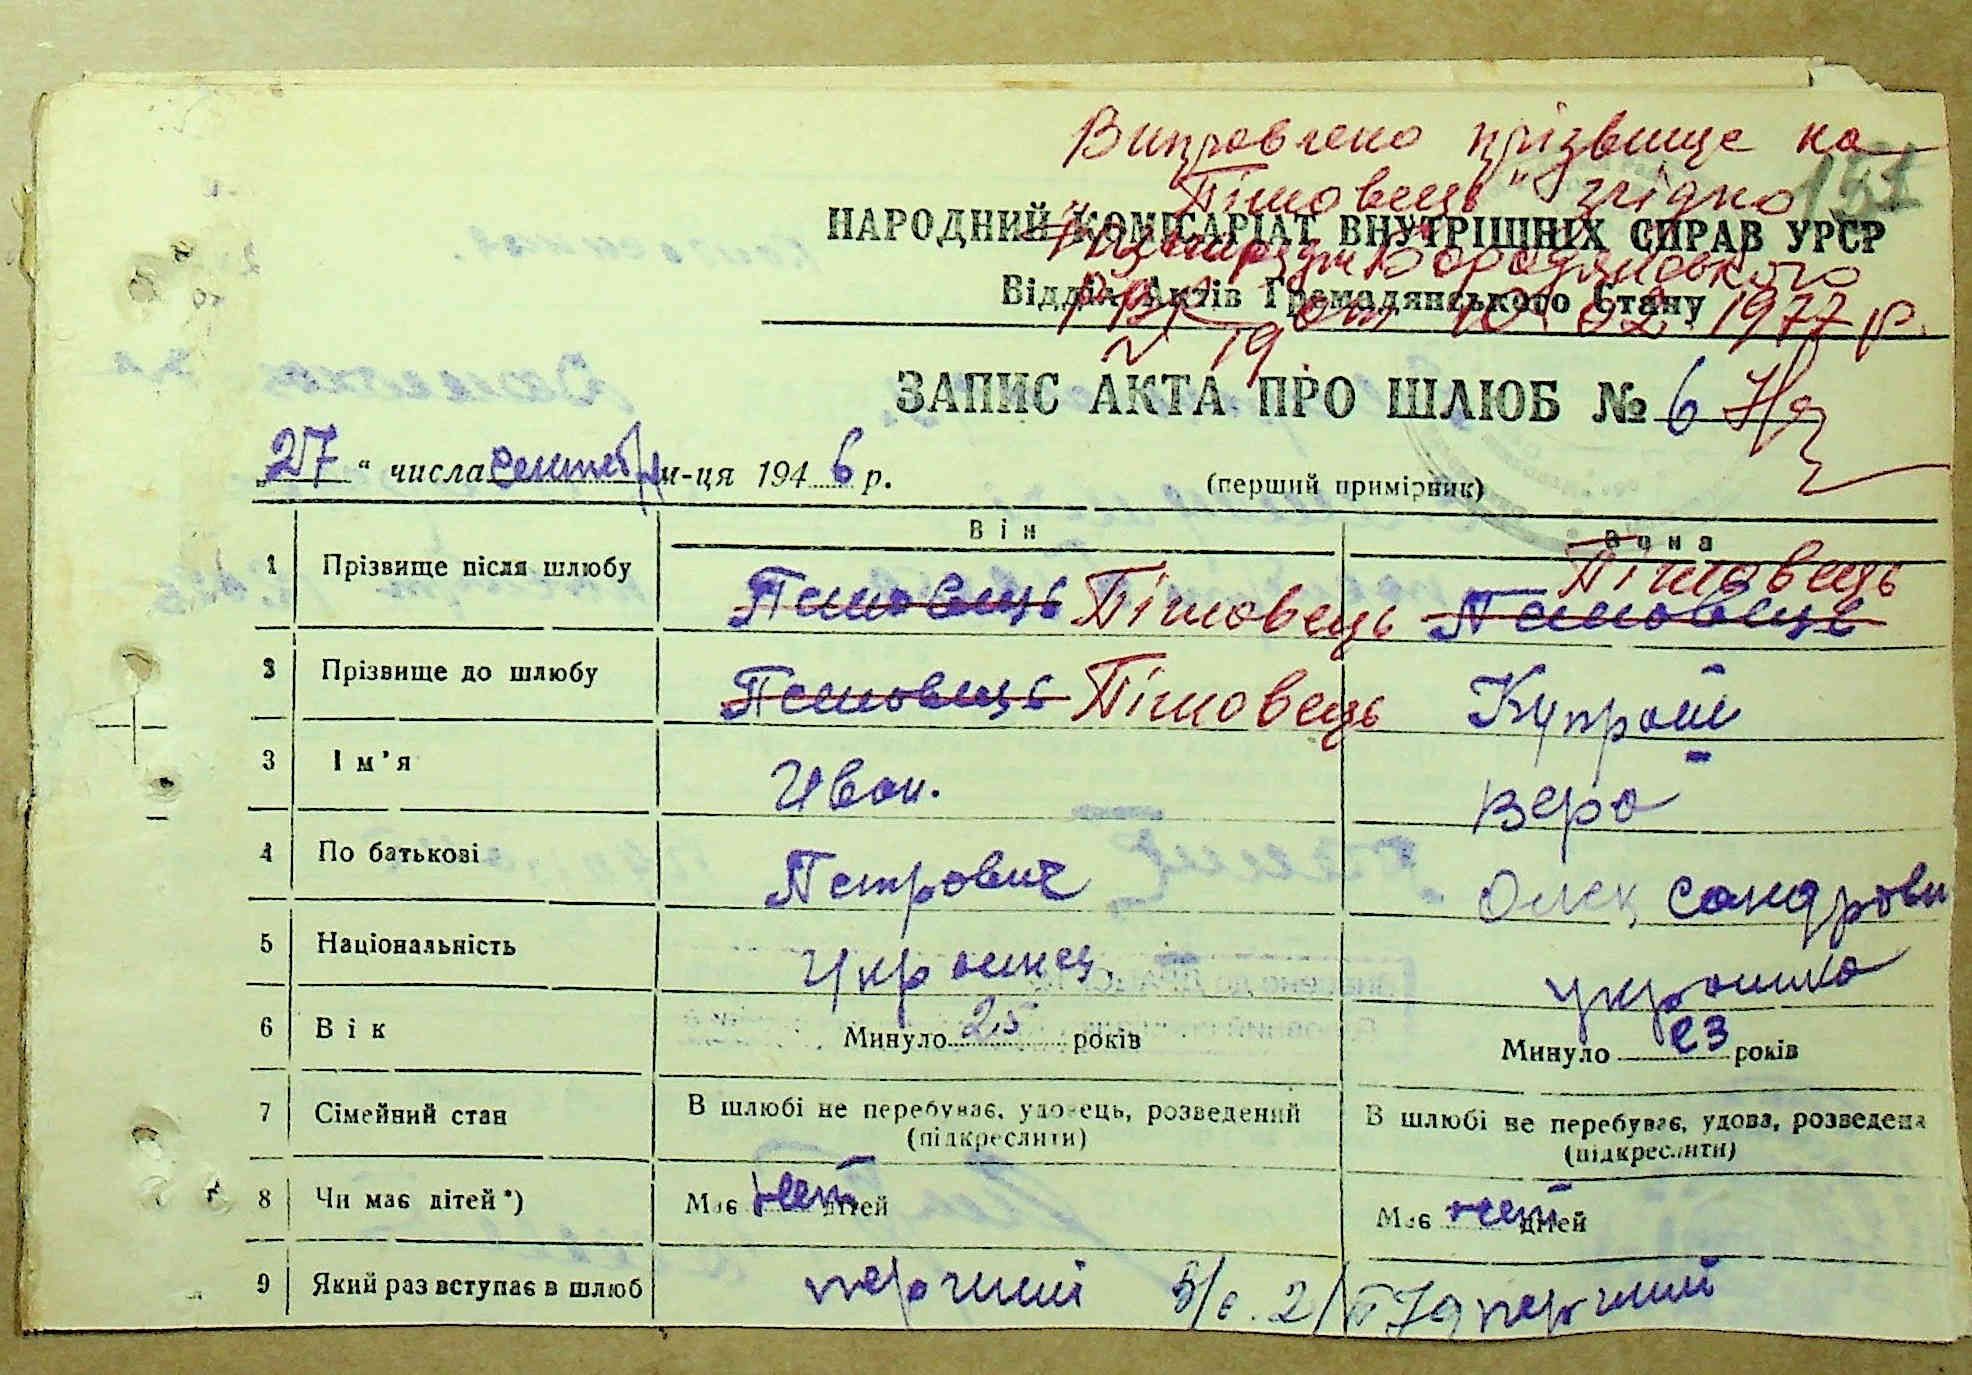 Виправлено прізвище на
"Пітовець" згідно
НАРОДНИЙ КОМІСАРІАТ ВНУТРІШНІХ СПРАВ УРСР
Бородянського
Відділ Актів Громадянського Стану
РВК від 10 02 1977 р.
№ 19
151
ЗАПИС АКТА ПРО ШЛЮБ № 6
27 " числа сентебр м-ця 1946 р.
(перший примірник)
Він Вона
1 Прізвище після шлюбу Пітовець Пітовець
2 Прізвище до шлюбу Пітовець Купрой
3 Ім'я Иван. Вера
4 По батькові Петрович Олександрови
5 Національність Украинец украинка
6 Вік Минуло 25 років Минуло 23 років
7 Сімейний стан В шлюбі не перебуває, удовець, розведений (підкреслити) В шлюбі не перебуває, удова, розведена (підкреслити)
8 Чи має дітей*) Має нет дітей Має нет дітей
9 Який раз вступає в шлюб перший перший